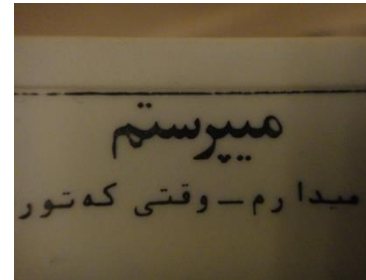 میپرستم
میدارم_وقتی که تور